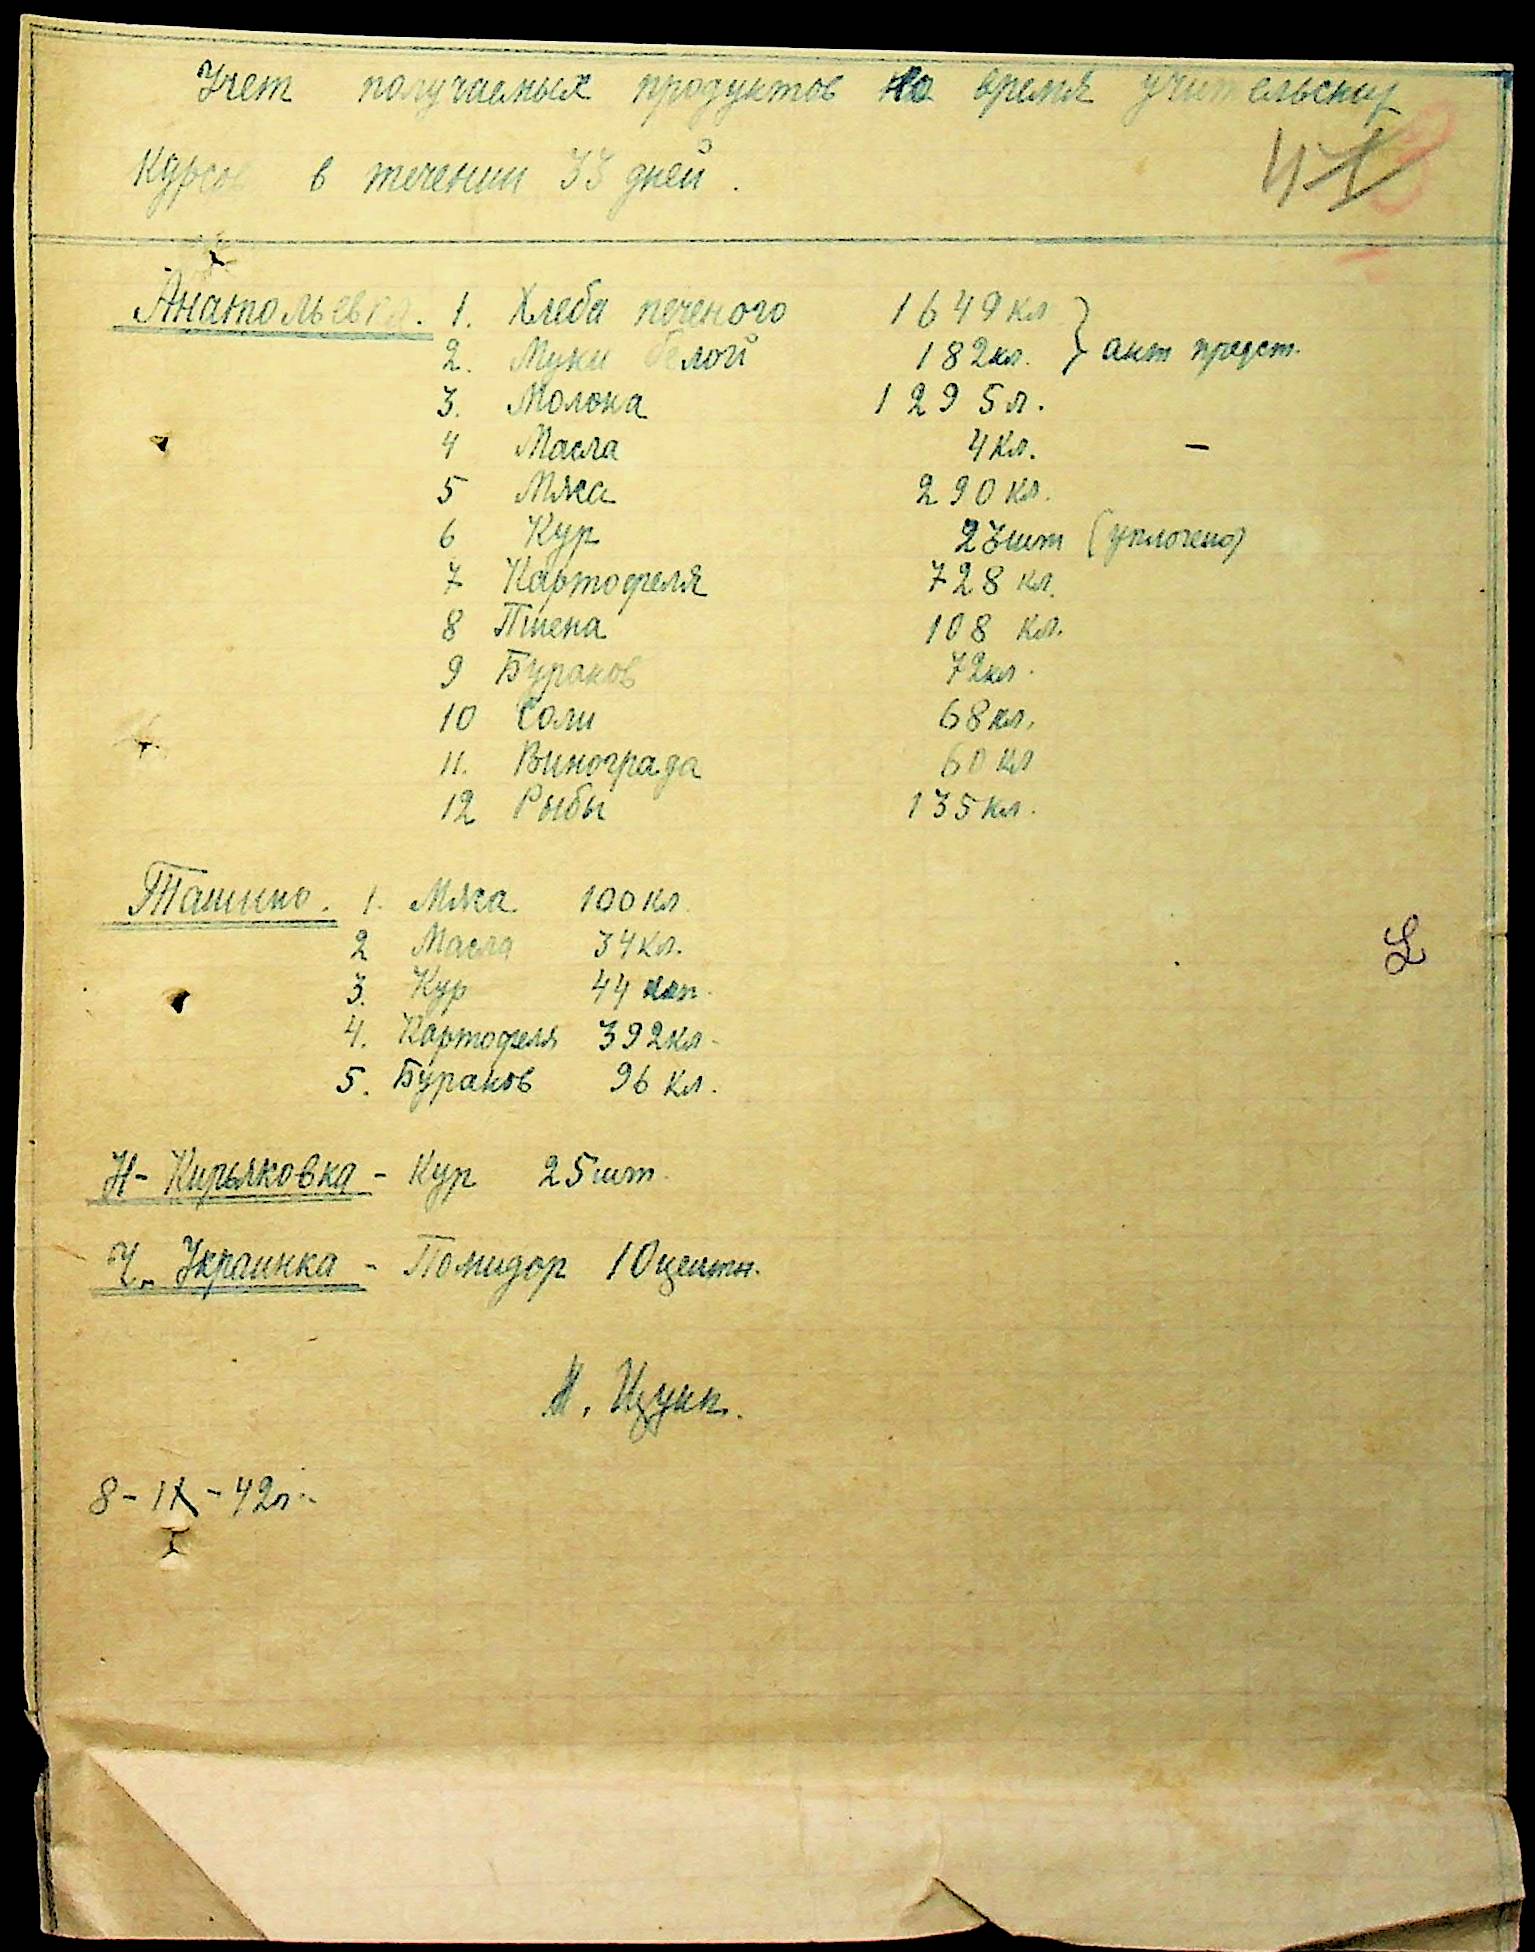 Учет получаемых продуктов на время учительских
курсов в течении 33 дней.
Анатольевка. 1. Хлеба печеного 1649 кл
2. Муки белой 182 кл. } акт предст.
3. Молока 1295 л.
4 Масла 4 кл. –
5 Мяса 290 кл.
6 Кур 23 шт (уплочено)
7 Картофеля 728 кл.
8 Пшена 108 кл.
9 Бураков 72 кл.
10 Соли 68 кл.
11. Винограда 60 кл
12 Рыбы 135 кл.
Ташино. 1. Мяса 100 кл.
2 Масла 34 кл.
3. Кур 44
4. Картофеля 392 кл.
5. Бураков 96 кл.
Н-Кирьяковка - Кур 25 шт.
Ч. Украинка - Помидор 10 центн.
8-IX-42 г.